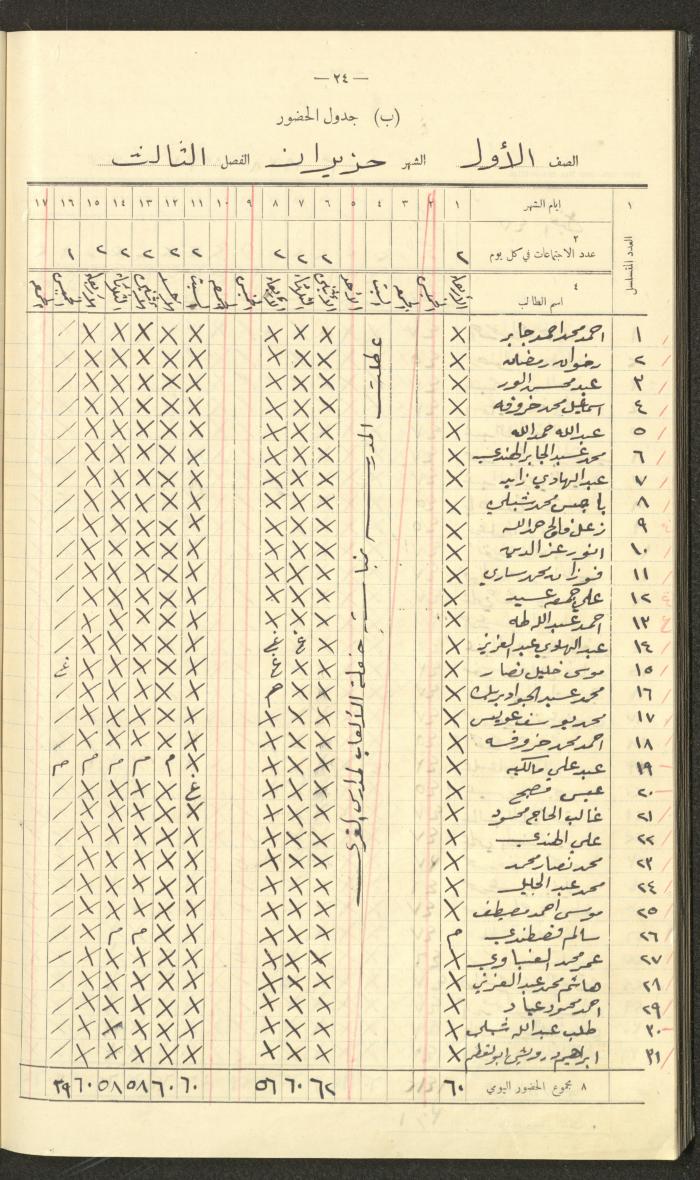 — ٢٤ —
(ب) جدول الحضور
الصف الأول الشهر حزيران الفصل الثالث
١ ايام الشهر ١ ٢ ٣ ٤ ٥ ٦ ٧ ٨ ٩ ١٠ ١١ ١٢ ١٣ ١٤ ١٥ ١٦ ١٧
العدد المتسلسل
٢ عدد الاجتماعات في كل يوم ٢ ٢ ٢ ٢ ٢ ٢ ٢ ٢ ٢ ١
٤ اسم الطالب الأربعاء الخميس الجمعة السبت الاحد الاثنين الثلاثاء الأربعاء الخميس الجمعة السبت الاحد الاثنين الثلاثاء الاربعاء الخميس الجمعة
عطلت المدرسه حفلة الألعاب لمدارس القرى
١ احمد محمد احمد جابر
٢ رضوان رمضان
٣ عبد محسن
٤ اسماعيل محمد خروفه
٥ عبد الله حمد الله
٦ محمد عبد الجابر الهندي
٧ عبد الهادي زايد
٨ محمد شبلي
٩
١٠ انور عز الدين
١١ فوزان محمد ساري
١٢ علي جمعه عبيد
١٣ احمد عبد الله طه
١٤ عبد الهادي عبد العزيز
١٥ موسى خليل نصار
١٦ محمد عبد الجواد
١٧ محمد يوسف عويس
١٨ احمد محمد خروفه
١٩ عبد علي مالكيه
٢٠ عيسى مصبح
٢١ غالب الحاج محمود
٢٢ علي الهندي
٢٣ محمد نصار محمد
٢٤ محمد عبد الجليل
٢٥ موسى احمد مصيطف
٢٦ سالم
٢٧ عمر محمد
٢٨ هاشم محمد عبد العزيز
٢٩ احمد محمود عياد
٣٠ طلب عبد الله شبلي
٣١ ابراهيم درويش
٨ مجموع الحضور اليومي ٦٠ ٦٢ ٦٠ ٥٦ ٦٠ ٦٠ ٥٨ ٥٨ ٦٠ ٢٩